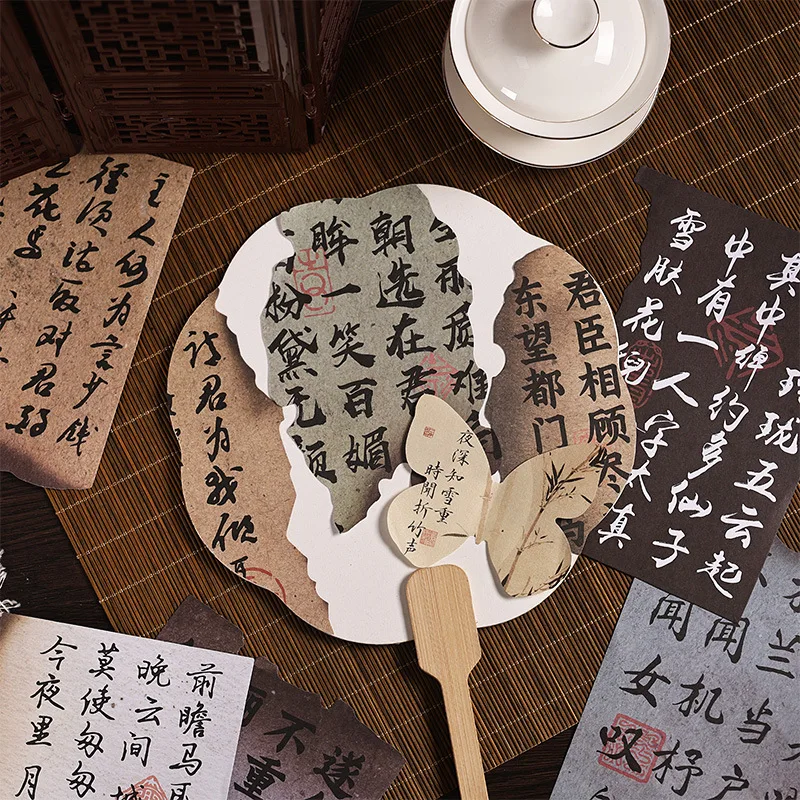 主人何为言少钱
径须沽取对君酌
花马
请君为我倾耳
生丽质难自
朝选在君
眸一笑百媚
粉黛无颜
君臣相顾尽
东望都门
夜深知雪重
時聞折竹声
玲珑五云起
其中绰约多仙子
中有一人字太真
雪肤花貌
兰当户
闻机杼
闻女叹
前瞻马耳
晚云间城
莫使匆匆
今夜里月
遂
不重